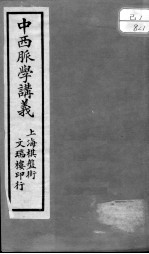 中西脈學講義
上海棋盤街
文瑞樓印行